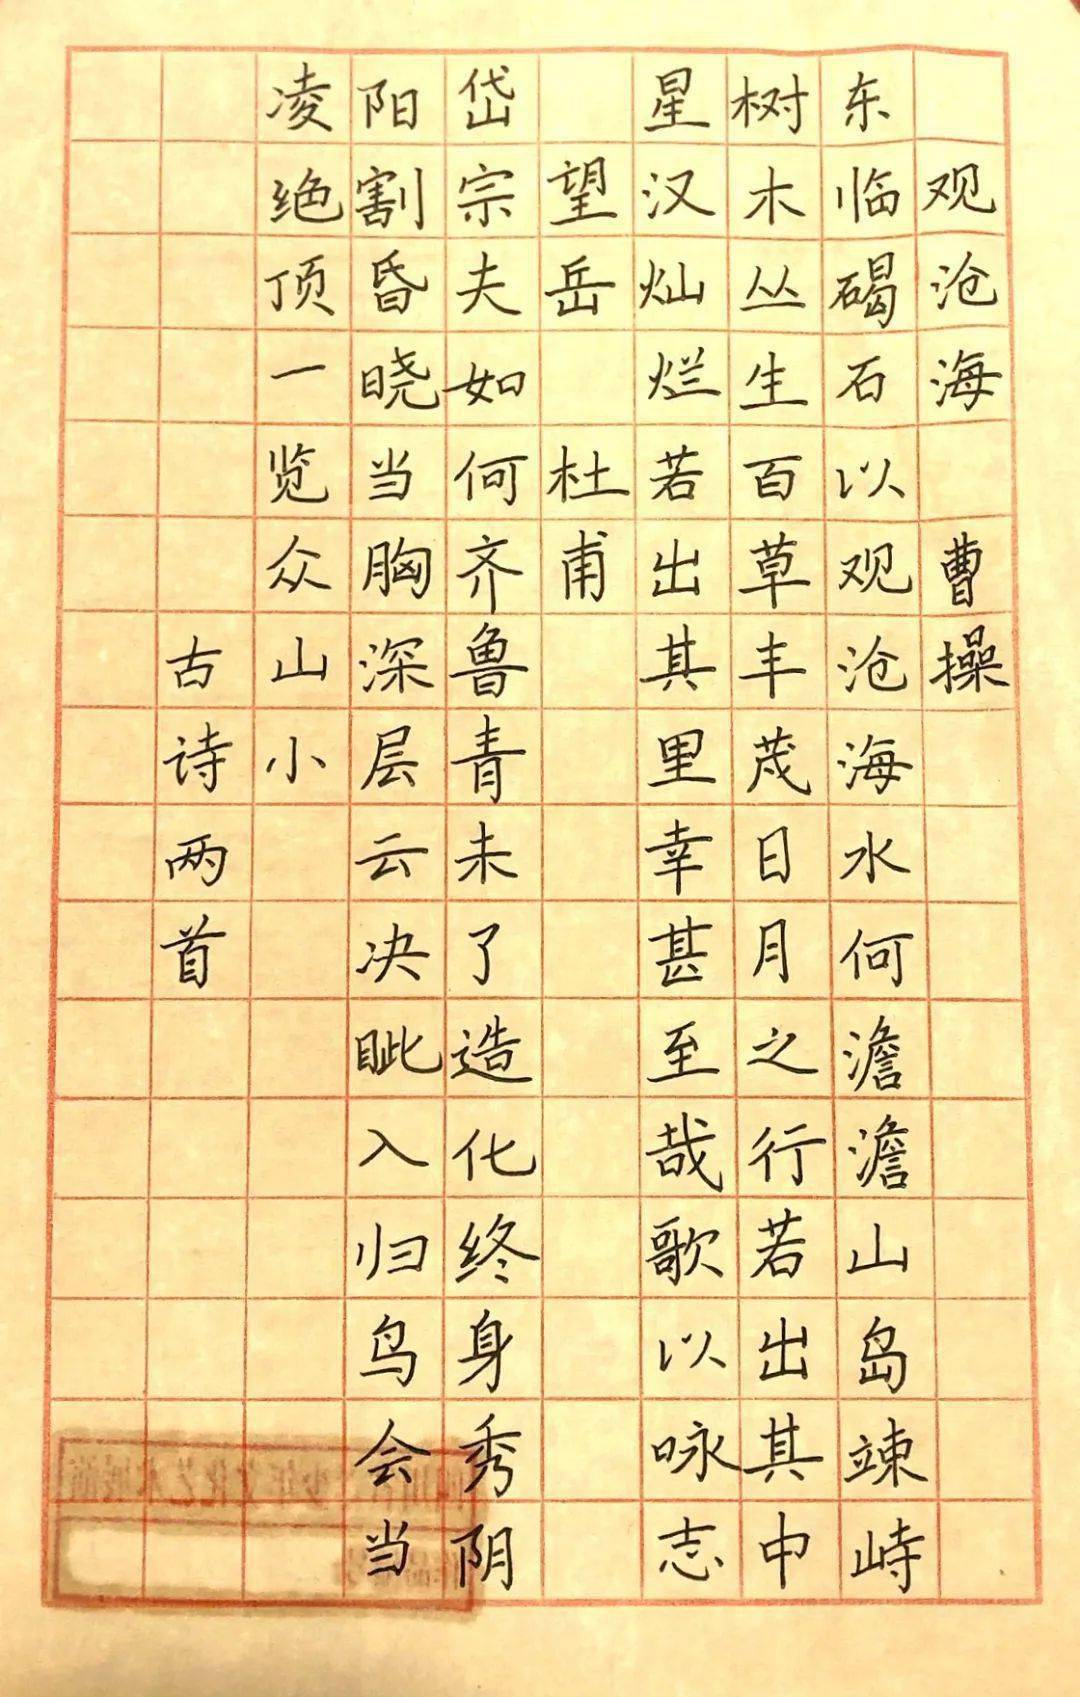 观沧海 曹操
东临碣石以观沧海水何澹澹山岛竦峙
树木丛生百草丰茂日月之行若出其中
星汉灿烂若出其里幸甚至哉歌以咏志
望岳 杜甫
岱宗夫如何齐鲁青未了造化终身秀阴
阳割昏晓当胸深层云决眦入归鸟会当
凌绝顶一览众山小
古诗两首